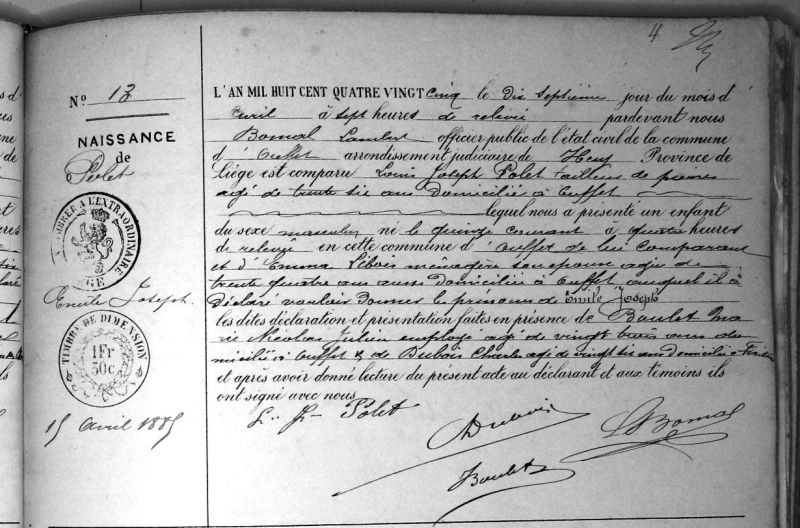 4
N° 13
NAISSANCE
de
Polet
TIMBRE A L'EXTRAORDINAIRE
Emile Joseph
TIMBRE DE DIMENSION
1Fr
30c
15 avril 1885
L'AN MIL HUIT CENT QUATRE VINGT cinq le Dix Septième jour du mois d
avril à sept heures de relevée pardevant nous
Bomal Lambert officier public de l'état civil de la commune
d' Ouffet arrondissement judiciaire de Huy Province de
Liège est comparu Louis Joseph Polet tailleur de pierres
agé de trente six ans Domicilié à Ouffet
lequel nous a présenté un enfant
du sexe masculin né le quinze courant à quatre heures
de relevée en cette commune d' Ouffet de lui Comparant
et d' Emma Libois ménagère son épouse agée de
trente quatre ans aussi Domiciliée à Ouffet auquel il a
Déclaré vouloir Donner le prénoms de Emile Joseph
les dites déclaration et présentation faites en présence de Boulet
Nicolas Julien employé agé de vingt trois ans do
micilié à Ouffet & de Dubois Charles agé de vingt six ans Domicilié à
et après avoir donné lecture du présent acte au déclarant et aux témoins ils
ont signé avec nous
L. J. Polet
Dubois
LBomal
Boulet